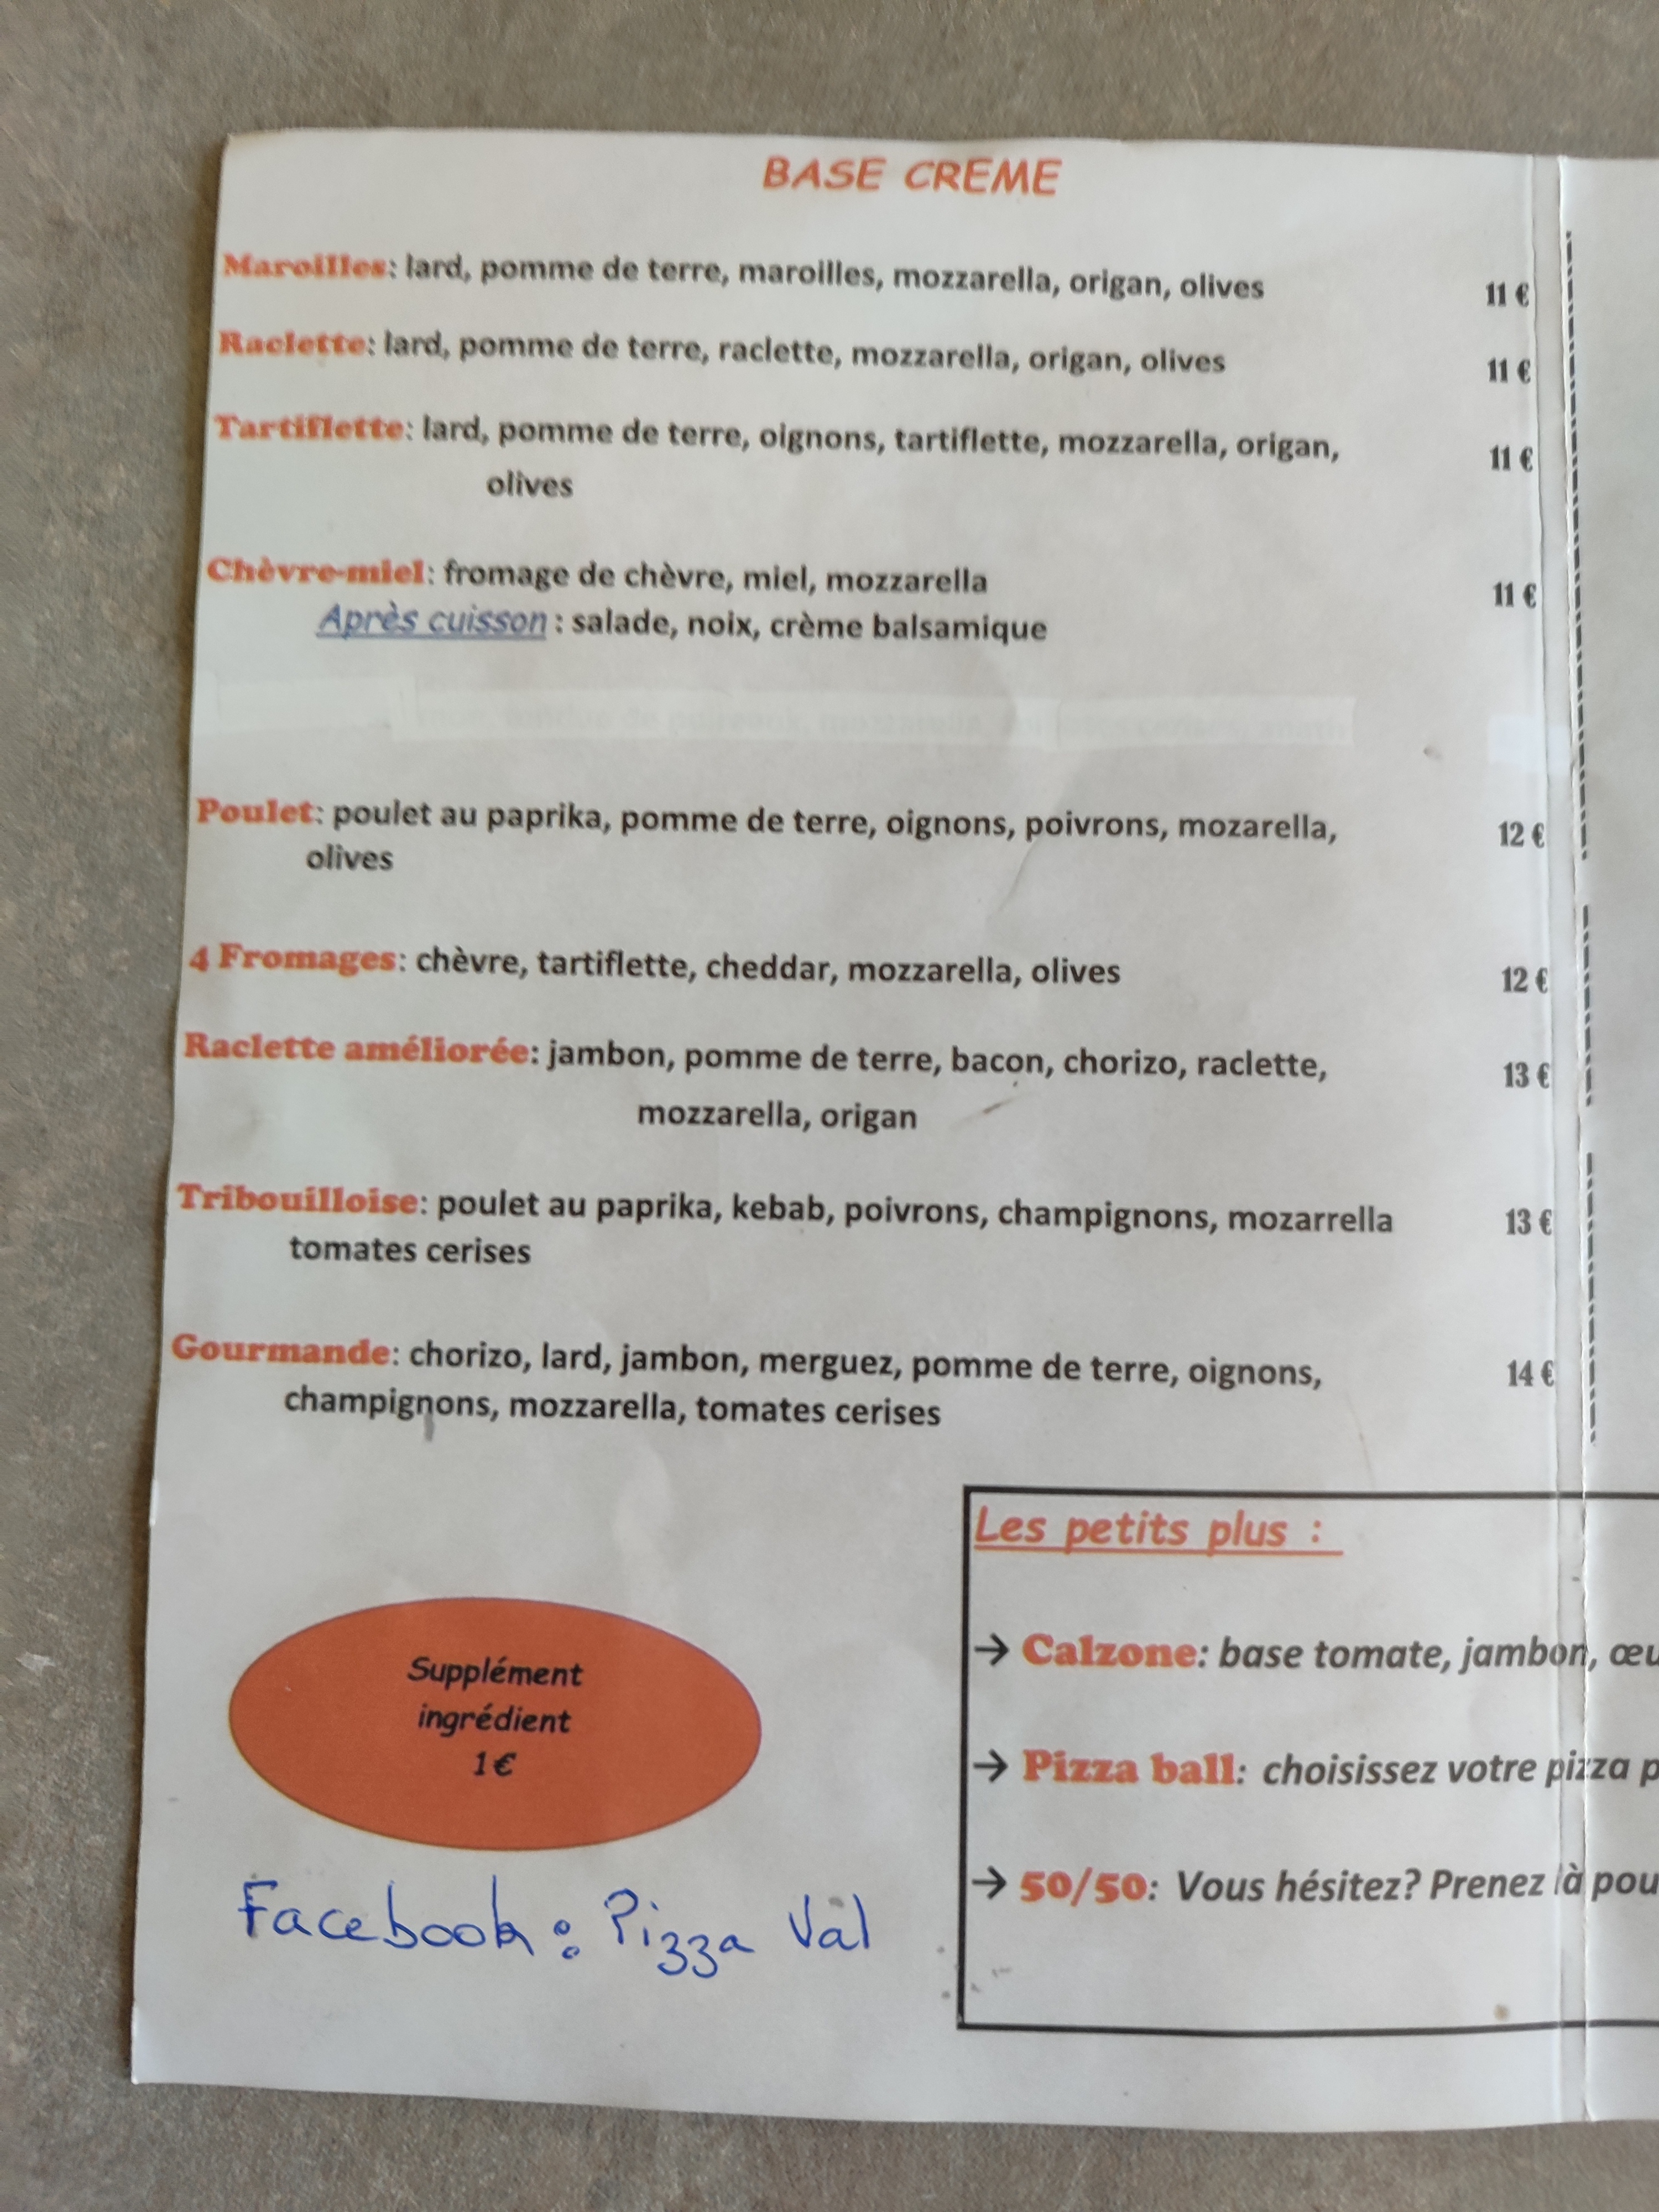 BASE CREME
Maroilles: lard, pomme de terre, maroilles, mozzarella, origan, olives 11 €
Raclette: lard, pomme de terre, raclette, mozzarella, origan, olives 11 €
Tartiflette: lard, pomme de terre, oignons, tartiflette, mozzarella, origan, 11 €
olives
Chèvre-miel: fromage de chèvre, miel, mozzarella 11 €
Après cuisson : salade, noix, crème balsamique
Poulet: poulet au paprika, pomme de terre, oignons, poivrons, mozarella, 12 €
olives
4 Fromages: chèvre, tartiflette, cheddar, mozzarella, olives 12 €
Raclette améliorée: jambon, pomme de terre, bacon, chorizo, raclette, 13 €
mozzarella, origan
Tribouilloise: poulet au paprika, kebab, poivrons, champignons, mozarrella 13 €
tomates cerises
Gourmande: chorizo, lard, jambon, merguez, pomme de terre, oignons, 14 €
champignons, mozzarella, tomates cerises
Les petits plus :
→ Calzone: base tomate, jambon, œu
→ Pizza ball: choisissez votre pizza p
→ 50/50: Vous hésitez? Prenez là pou
Supplément
ingrédient
1€
Facebook : Pizza Val